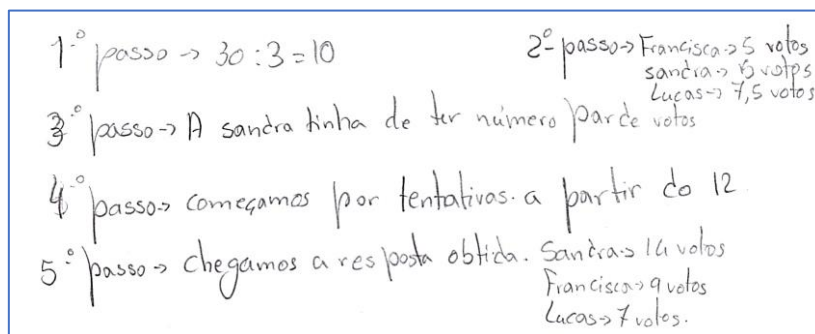 1.º passo → 30 : 3 = 10
2º passo → Francisca → 5 votos
Sandra → votos
Lucas → 7,5 votos
3.º passo → A sandra tinha de ter número par de votos
4.º passo → começamos por tentativas. a partir do 12
5.º passo → chegamos a resposta obtida. Sandra → 14 votos
Francisca → 9 votos
Lucas → 7 votos.